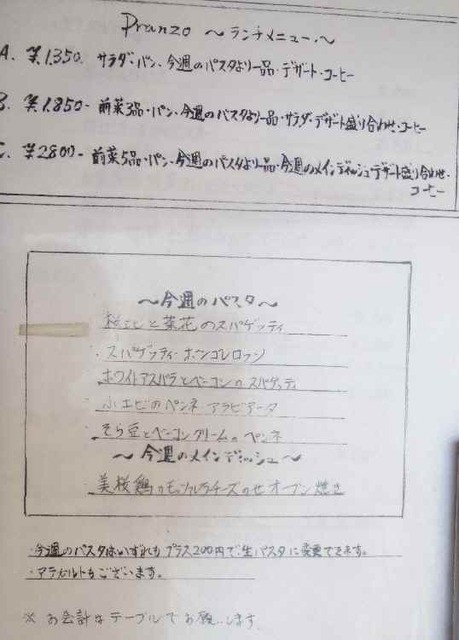 Pranzo ～ランチメニュー～
A. ¥1.350. サラダ・パン・今週のパスタより一品・デザート・コーヒー
B. ¥1.850- 前菜3品・パン・今週のパスタより一品・サラダ・デザート盛り合わせ・コーヒー
C. ¥2800- 前菜5品・パン・今週のパスタより一品・今週のメインディッシュ・デザート盛り合わせ・
コーヒー
～今週のパスタ～
桜エビと菜花のスパゲッティ
・スパゲッティ・ボンゴレロッソ
・ホワイトアスパラとベーコンのスパゲッティ
・小エビのペンネ アラビアータ
・そら豆とベーコンクリームのペンネ
～今週のメインディッシュ～
・美桜鶏のモッツァレラチーズのせオーブン焼き
・今週のパスタはいずれもプラス200円で生パスタに変更できます。
・アラカルトもございます。
※ お会計はテーブルでお願いします。